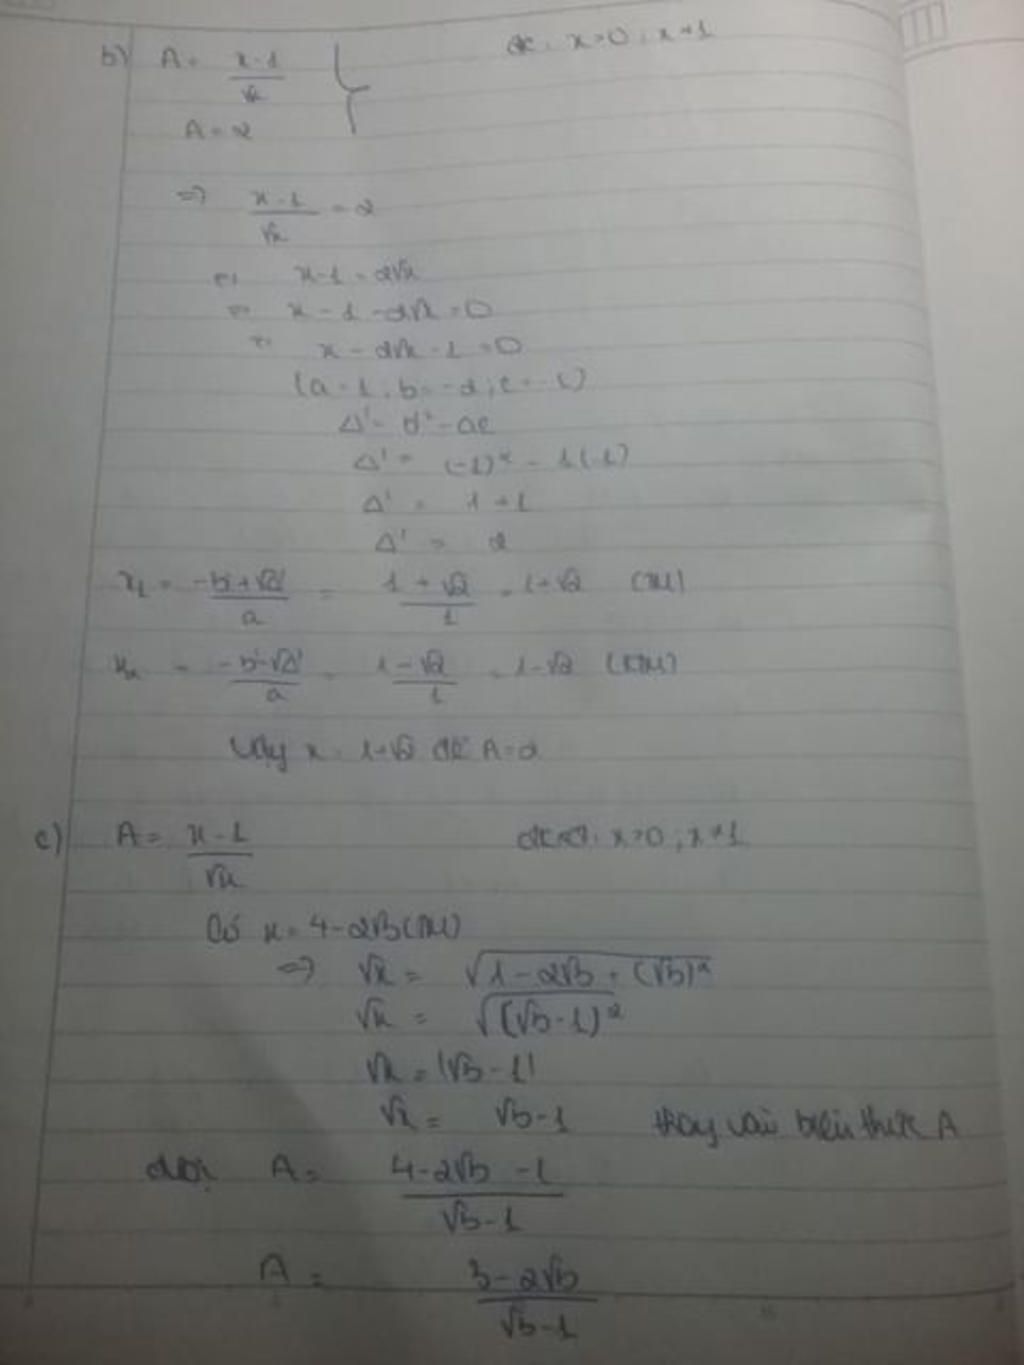 b) A = x-1/√x đk: x>0; x≠1
A = 2
=> x-1/√x = 2
<=> x-1 = 2√x
<=> x - 1 - 2√x = 0
<=> x - 2√x - 1 = 0
(a = 1; b = -2; c = -1)
Δ' = b'² - ac
Δ' = (-1)² - 1(-1)
Δ' = 1 + 1
Δ' = 2
x₁ = -b'+√Δ'/a = 1+√2/1 = 1+√2 (TM)
x₂ = -b'-√Δ'/a = 1-√2/1 = 1-√2 (KTM)
Vậy x = 1+√2 để A=2
c) A = x-1/√x đkxđ: x>0; x≠1
Có x = 4-2√3 (TM)
=> √x = √1-2√3+(√3)²
√x = √(√3-1)²
√x = |√3-1|
√x = √3-1 thay vào biểu thức A
được A = 4-2√3-1/√3-1
A = 3-2√3/√3-1